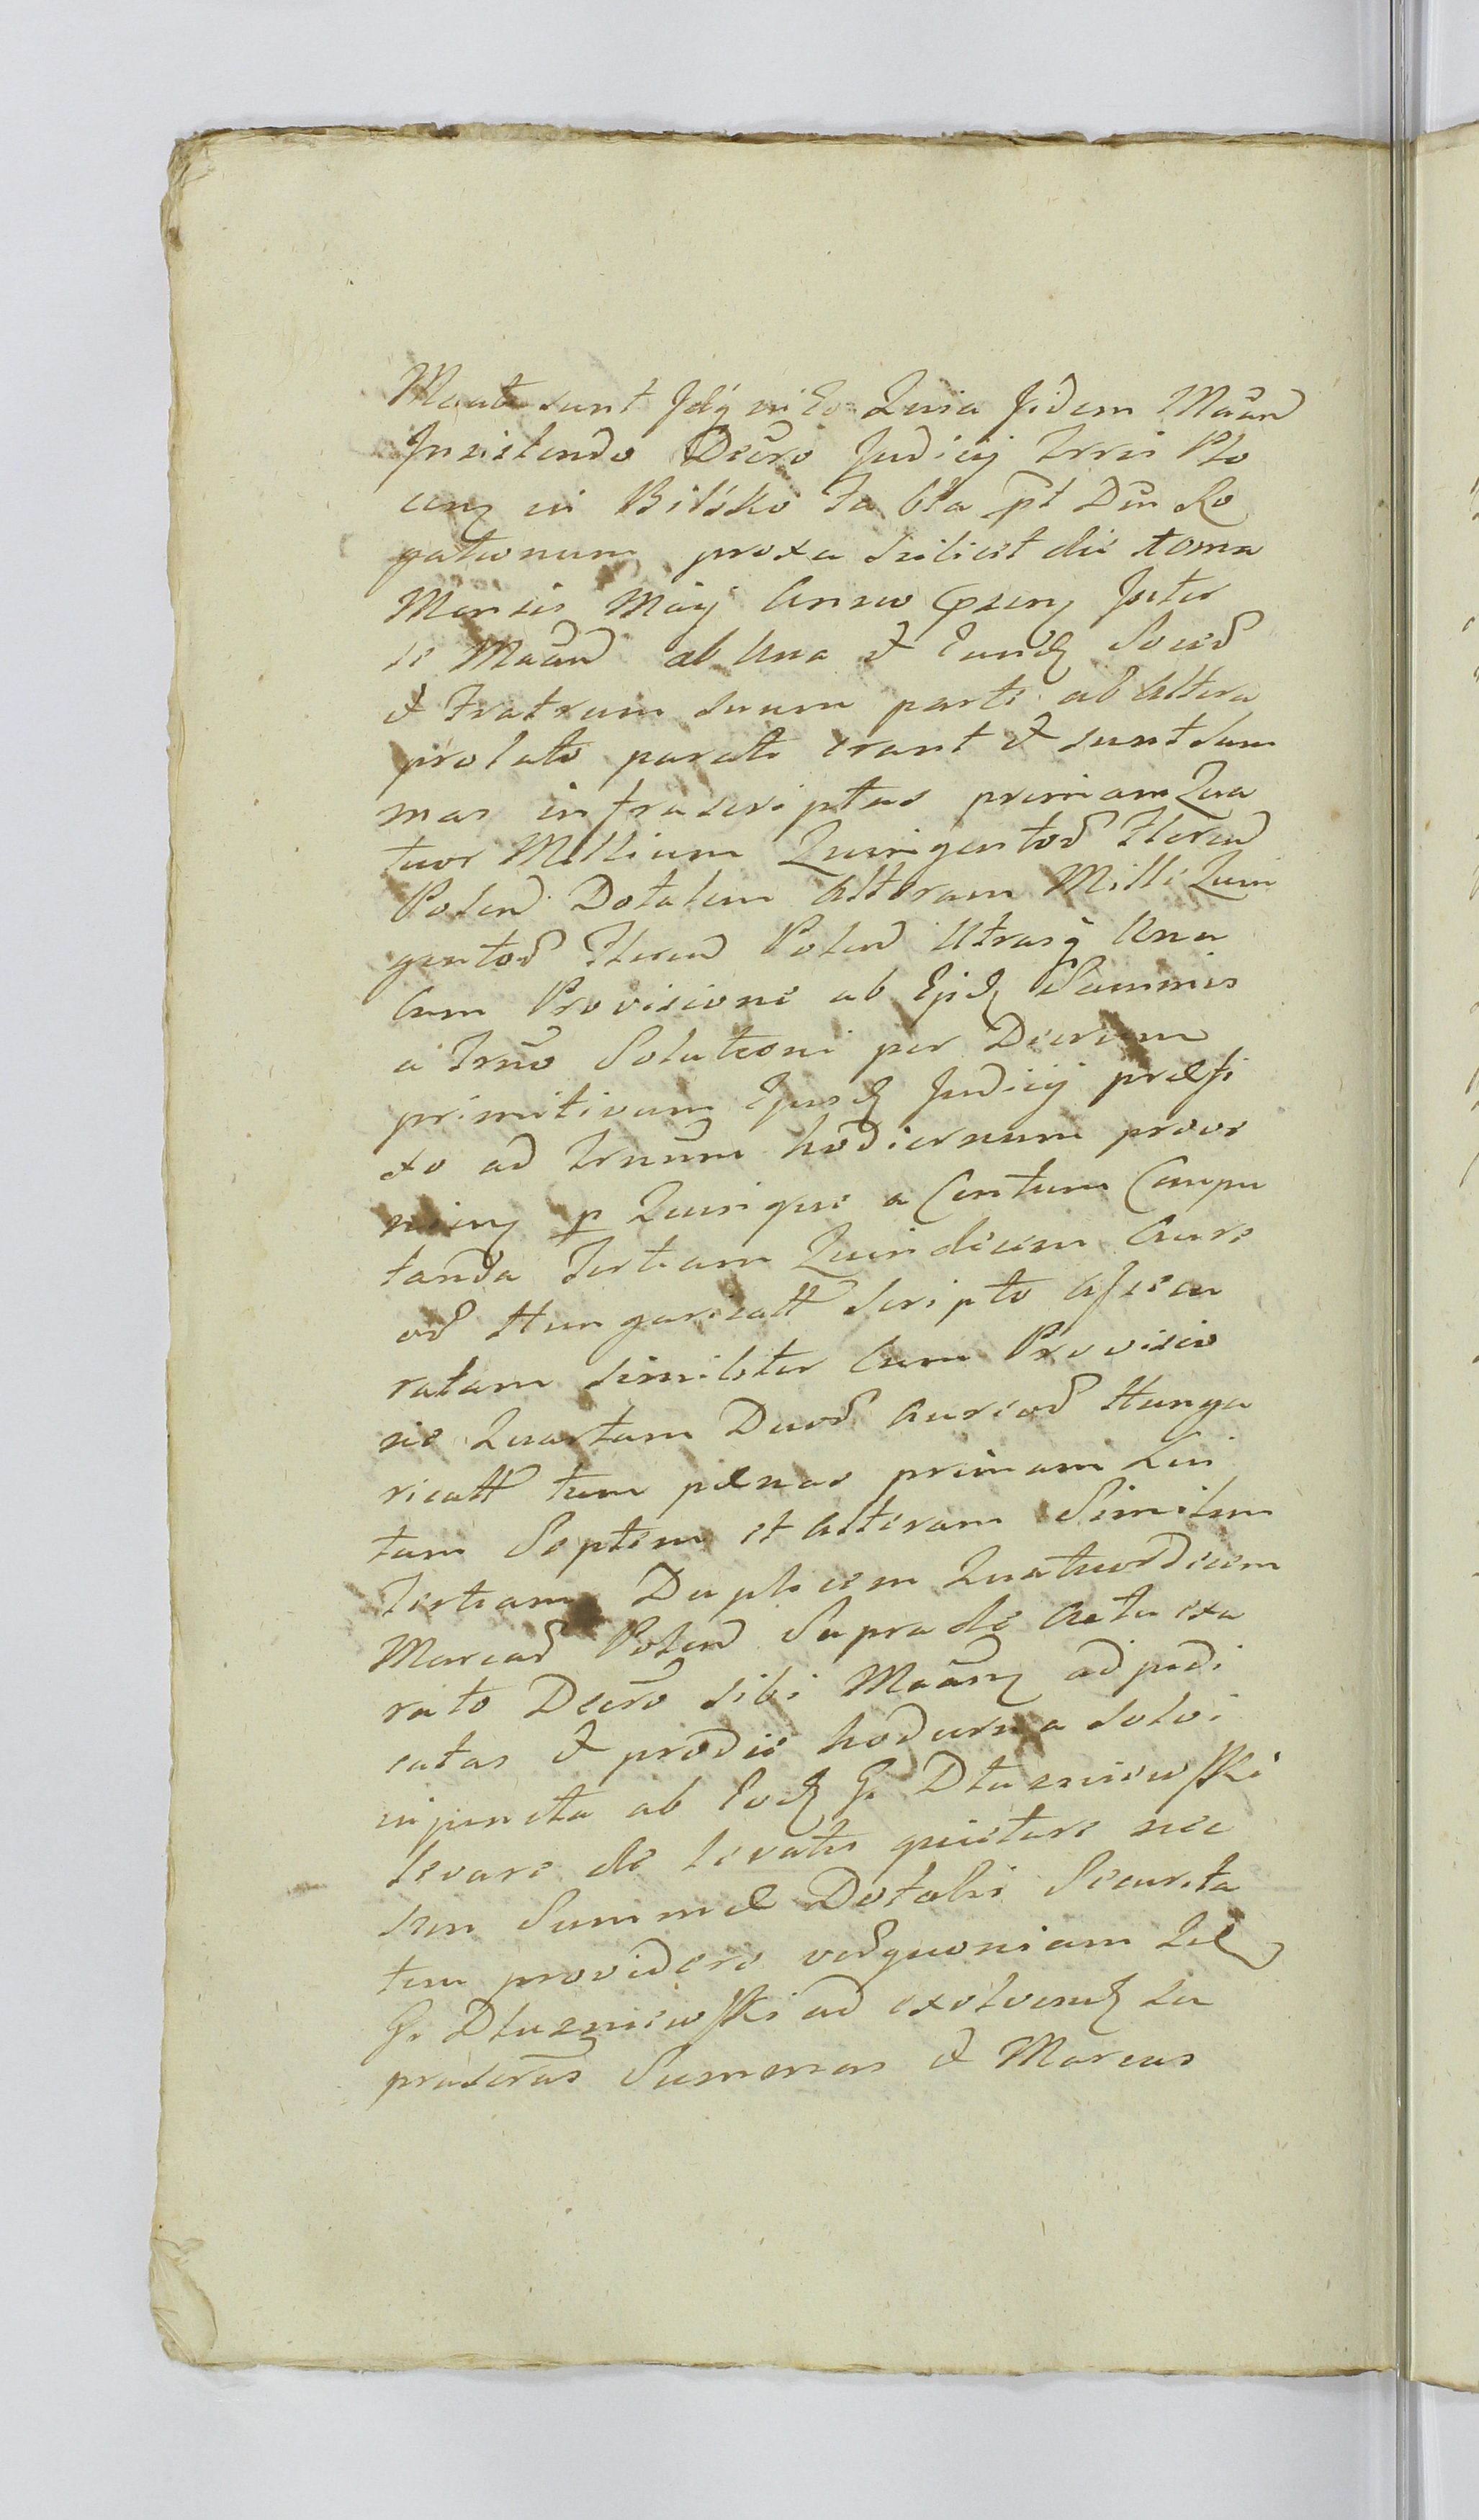 Maãti sunt Jdq̃ in Eo Quia Jidem Maãn
Jnsistendo Decro Judicij Trris Plo
cen in Bilsko fa 6ta pt Dm Ro
gationum proxa scilicet die
Mensis Maij Anno Jnter
se Maan ab Una & Eund Soced
& Fratrum suum parte ab Altera
prolato parati erant & sunt sum
mas infrascriptas primam Qua
tuor Millium Quingentor Floren
Polon Dotalem Alteram Mille Quin
gentor Floren Polon Utrasq Una
Cum Provisione ab Ejsd Summis
a Trno Solutioni per Decretum
primitivum Ejusd Judicij præfi
xo ad Trnum hodiernum prove
nien p Quinque a Centum Compu
tanda Tertiam Quindecim Aure
or Hungaricall Scripto Assecu
ratam similiter Cum Provisio
ne Quartam Duor Aureor Hunga
ricall tum pænas primam Lui
tam Septem et Alteram Similem
Tertiam Duplicem Quatuordecim
Marcar Polon Supra de Actu exa
rato Decro sibi Maan adjudi
catas & pro die hodierna solvi
injuncta ab Eod G. Dłuzniewsski
levare de levatis quietare nec
non Summæ Dotalis Securita
tem providere verquoniam
G. Dłuzniewsski ad exolvend su
prascras Summas & Marcas